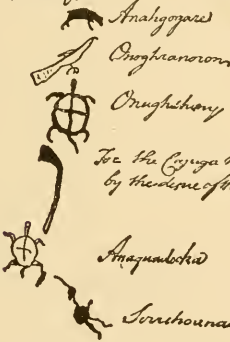 Anahgozare
Onoghranorom
Onughshiny
For the Cayuga
by the desire of th
Anaquadecka
Serrehouna